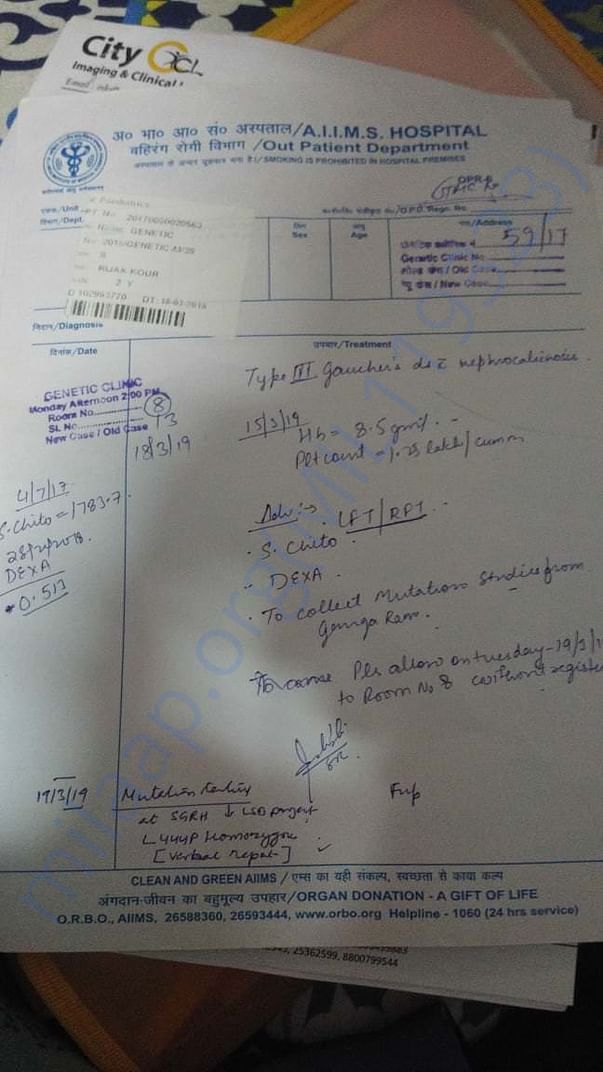 City
Imaging & Clinical
अ० भा० आ० सं० अस्पताल/A.I.I.M.S. HOSPITAL
बहिरंग रोगी विभाग /Out Patient Department
SMOKING IS PROHIBITED IN HOSPITAL PREMISES
एकक/Unit
विभाग/Dept.
GENETIC
RIJAK KOUR
2 Y
लिंग
Sex
आयु
Age
O.P.D. Regn. No.
पता/Address
59/17
Genetic Clinic No
Old Case
New Case
निदान/Diagnosis
दिनांक/Date
उपचार/Treatment
GENETIC CLINIC
Monday Afternoon 2:00 PM
Room No. 8
SL No. 13
New Case / Old Case
18/3/19
Type III Gaucher's dz c nephrocalcinosis.
15/3/19 Hb = 8.5 gm%.
Plt count = 1.25 lakh/cumm
4/7/17
S. Chito = 1783.7
DEXA
0.513
Adv :→ LFT/RFT
S. Chito
DEXA.
To collect Mutation Studies from
Ganga Ram.
Pls allow on tuesday - 19/3/1
to Room No 8 without registe
SR
19/3/19
Mutation testing
at SGRH ↓ LSD project
L444P Homozygous
[Verbal report]
Fup
CLEAN AND GREEN AIIMS / एम्स का यही संकल्प, स्वच्छता से काया कल्प
अंगदान-जीवन का बहुमूल्य उपहार/ORGAN DONATION - A GIFT OF LIFE
O.R.B.O., AIIMS, 26588360, 26593444, www.orbo.org Helpline - 1060 (24 hrs service)
25362599, 8800799544